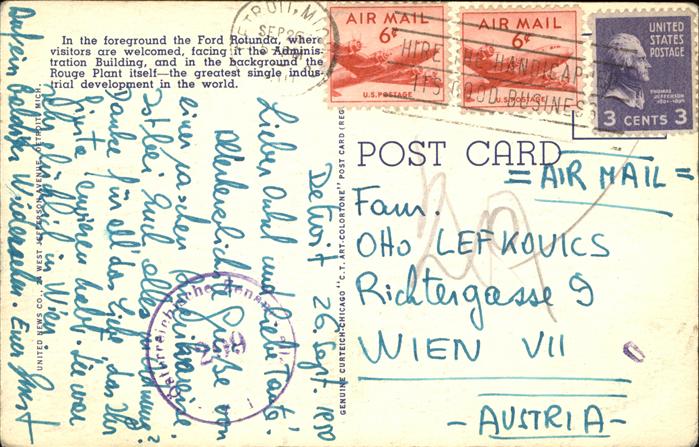 In the foreground the Ford Rotunda, where
visitors are welcomed, facing it the Adminis-
tration Building, and in the background the
Rouge Plant itself—the greatest single indus-
trial development in the world.
DETROIT, MICH
SEP 26
AIR MAIL
6¢
U.S. POSTAGE
AIR MAIL
6¢
U.S. POSTAGE
HIRE THE HANDICAPPED
IT'S GOOD BUSINESS
UNITED
STATES
POSTAGE
THOMAS
JEFFERSON
1801-1809
3 CENTS 3
POST CARD
= AIR MAIL =
Fam.
Otto LEFKOVICS
Richtergasse 9
WIEN VII
- AUSTRIA -
Detroit 26. Sept. 1950
Lieber Onkel und liebe Tante!
Allerherzlichste Grüße von
einer raschen Amerikareise.
Ist bei Euch alles in Ordnung?
Danke für all' das Liebe, das Ihr
Sie war
sehr glücklich in Wien.
Auf ein baldiges Wiedersehen. Euer Ernst
Österreichische Zensurstelle
229
UNITED NEWS CO., 24 WEST JEFFERSON AVENUE, DETROIT, MICH.
GENUINE CURTEICH-CHICAGO "C.T. ART-COLORTONE" POST CARD (REG